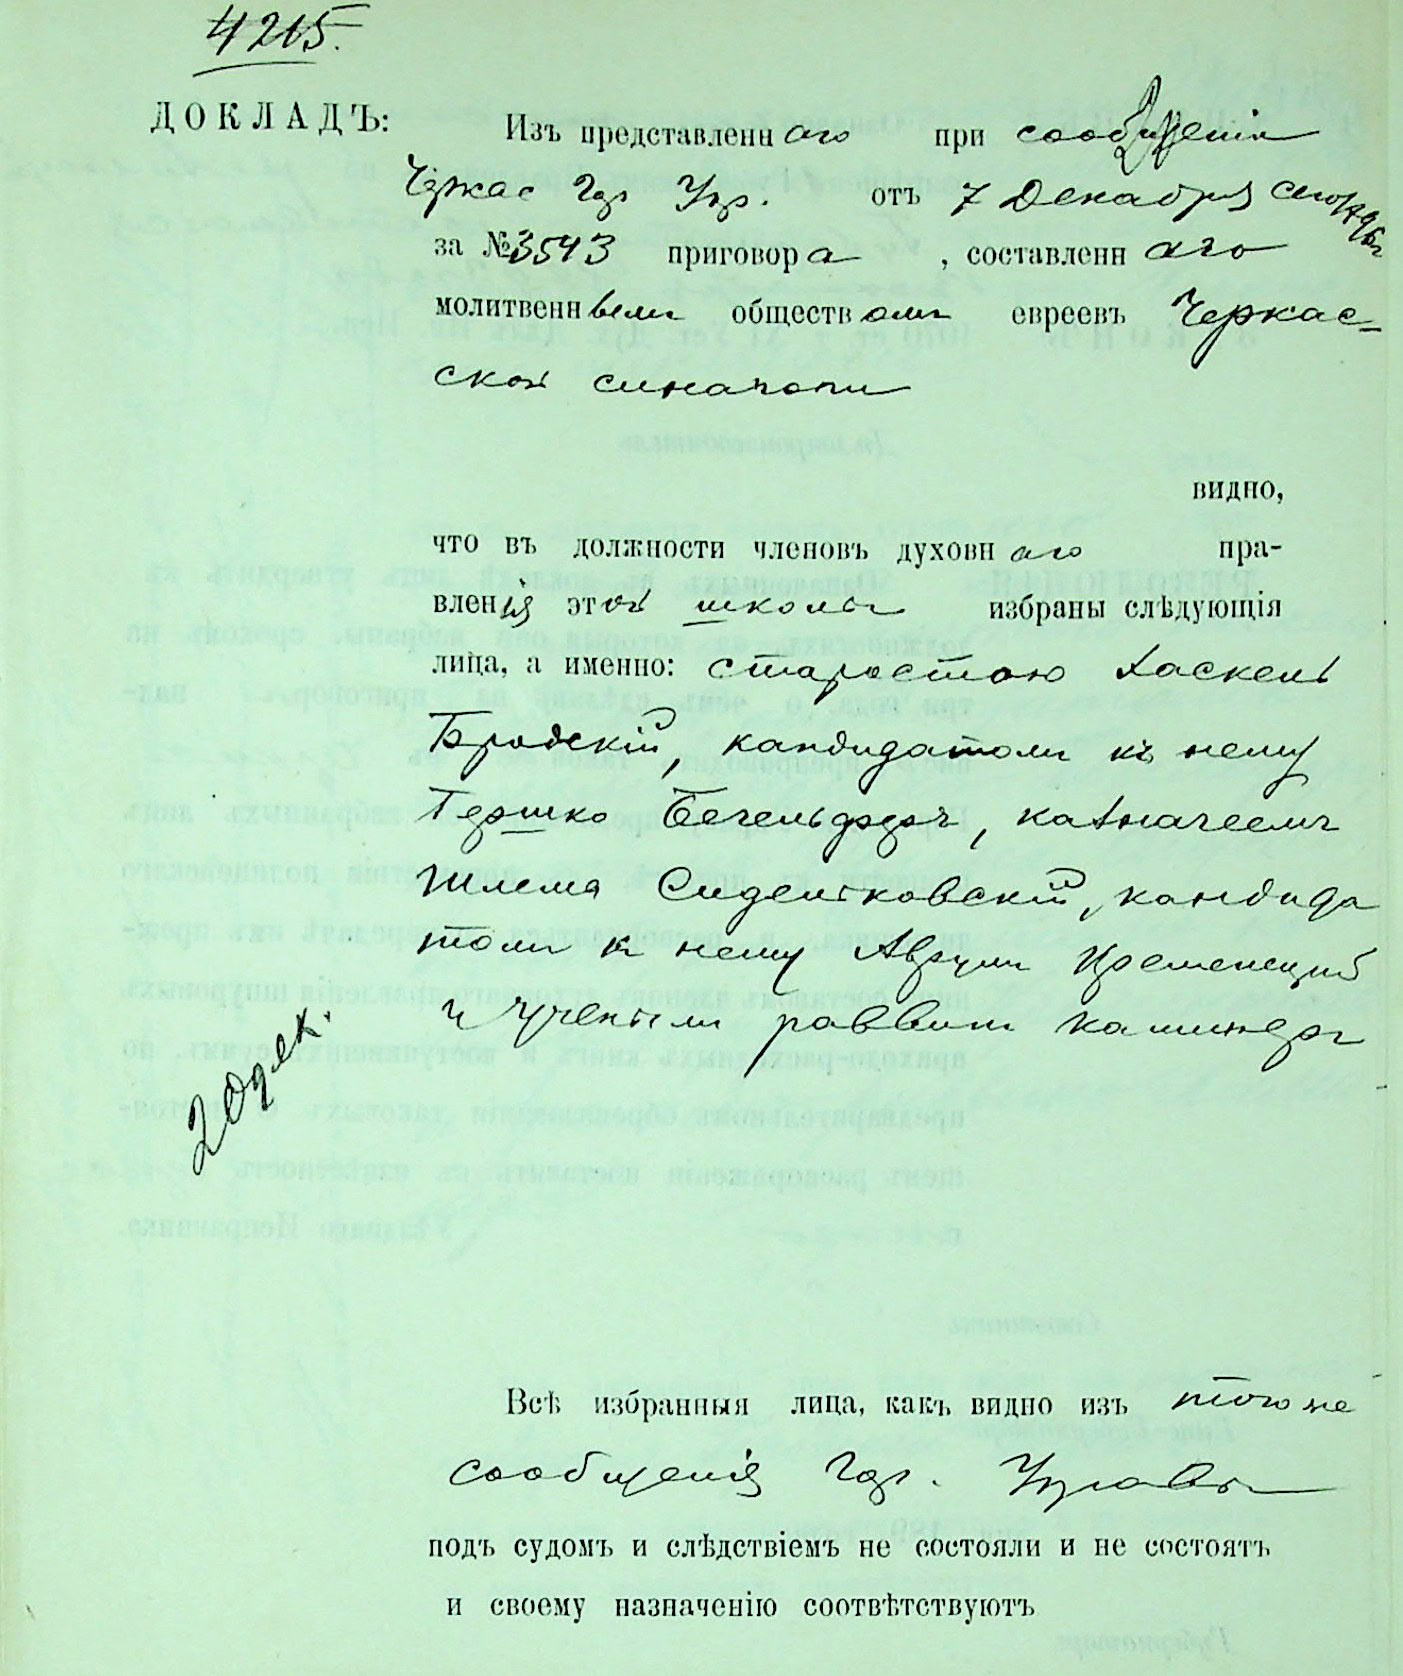 4215.
ДОКЛАДЪ:
Изъ представленнаго при сообщеніи
Черкас Гор Упр. отъ 7 Декабря сего 1896 г
за № 3543 приговора, составленнаго
молитвеннымъ обществомъ евреевъ Черкас-
ской синагоги
видно,
что въ должности членовъ духовнаго пра-
вленія этой школы избраны слѣдующія
лица, а именно: старостою Хаскель
Бродскій, кандидатомъ къ нему
Гершко Бегельферъ, казначеемъ
Шлема Сиделковскій, кандида
томъ къ нему Аврумъ Кременецкій
и ученымъ раввинъ Каминеръ
20 дек.
Всѣ избранныя лица, какъ видно изъ того же
сообщенія Гор. Управы
подъ судомъ и слѣдствіемъ не состояли и не состоятъ
и своему назначенію соотвѣтствуютъ